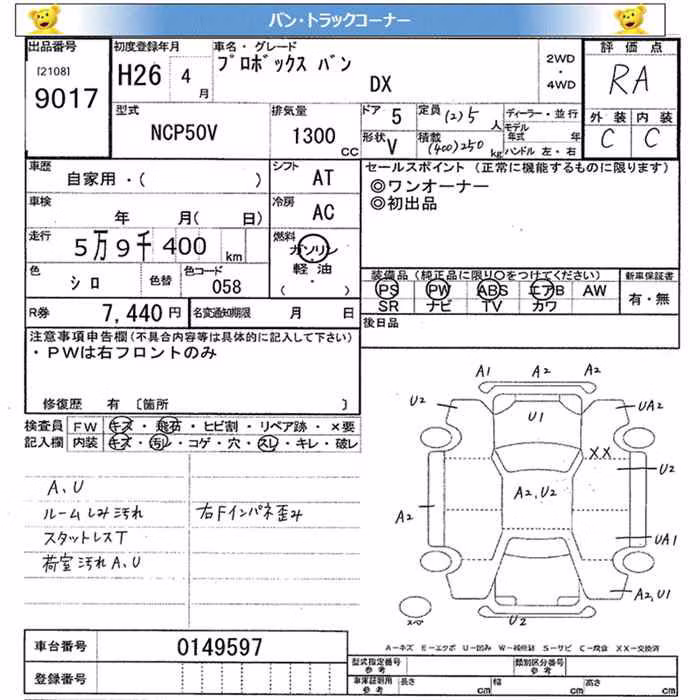 バン・トラックコーナー
出品番号
[2108]
9017
初度登録年月
H26 4 月
車名・グレード
プロボックス バン
DX
2WD
・
4WD
評価点
RA
外装 内装
C C
型式
NCP50V
排気量
1300
CC
ドア 5
定員 (2)5 人
形状 V
積載 (400)250 kg
ディーラー・並行
モデル年式 年
ハンドル 左・右
車歴
自家用・( )
シフト
AT
車検
年 月( 日)
冷房
AC
走行
5万9千400 km
燃料
ガソリン
軽油
( ・ )
色
シロ
色替
色コード
058
R券
7,440円
名変通知期限 月 日
セールスポイント (正常に機能するものに限ります)
◎ワンオーナー
◎初出品
装備品 (純正品に限り○をつけてください)
PS PW ABS エアB AW
SR ナビ TV カワ
新車保証書
有・無
後日品
注意事項申告欄(不具合内容等は具体的に記入して下さい)
・PWは右フロントのみ
修復歴 有 〔箇所 〕
検査員
記入欄
FW キズ・飛石・ヒビ割・リペア跡・×要
内装 キズ・汚レ・コゲ・穴・スレ・キレ・破レ
A、U
ルームしみ汚れ
スタットレスT
荷室汚れA、U
右Fインパネ歪み
A1 A2 A2
U2
U1
UA2
XX
U2
A2,U2
A2
UA1
A2,U1
U2
スペア
A−キズ E−エクボ U−凹み W−補修跡 S−サビ C−腐食 XX−交換済
車台番号
0149597
登録番号
型式指定番号
参考
類別区分番号
参考
車庫証明用
参考
長さ cm
幅 cm
高さ cm